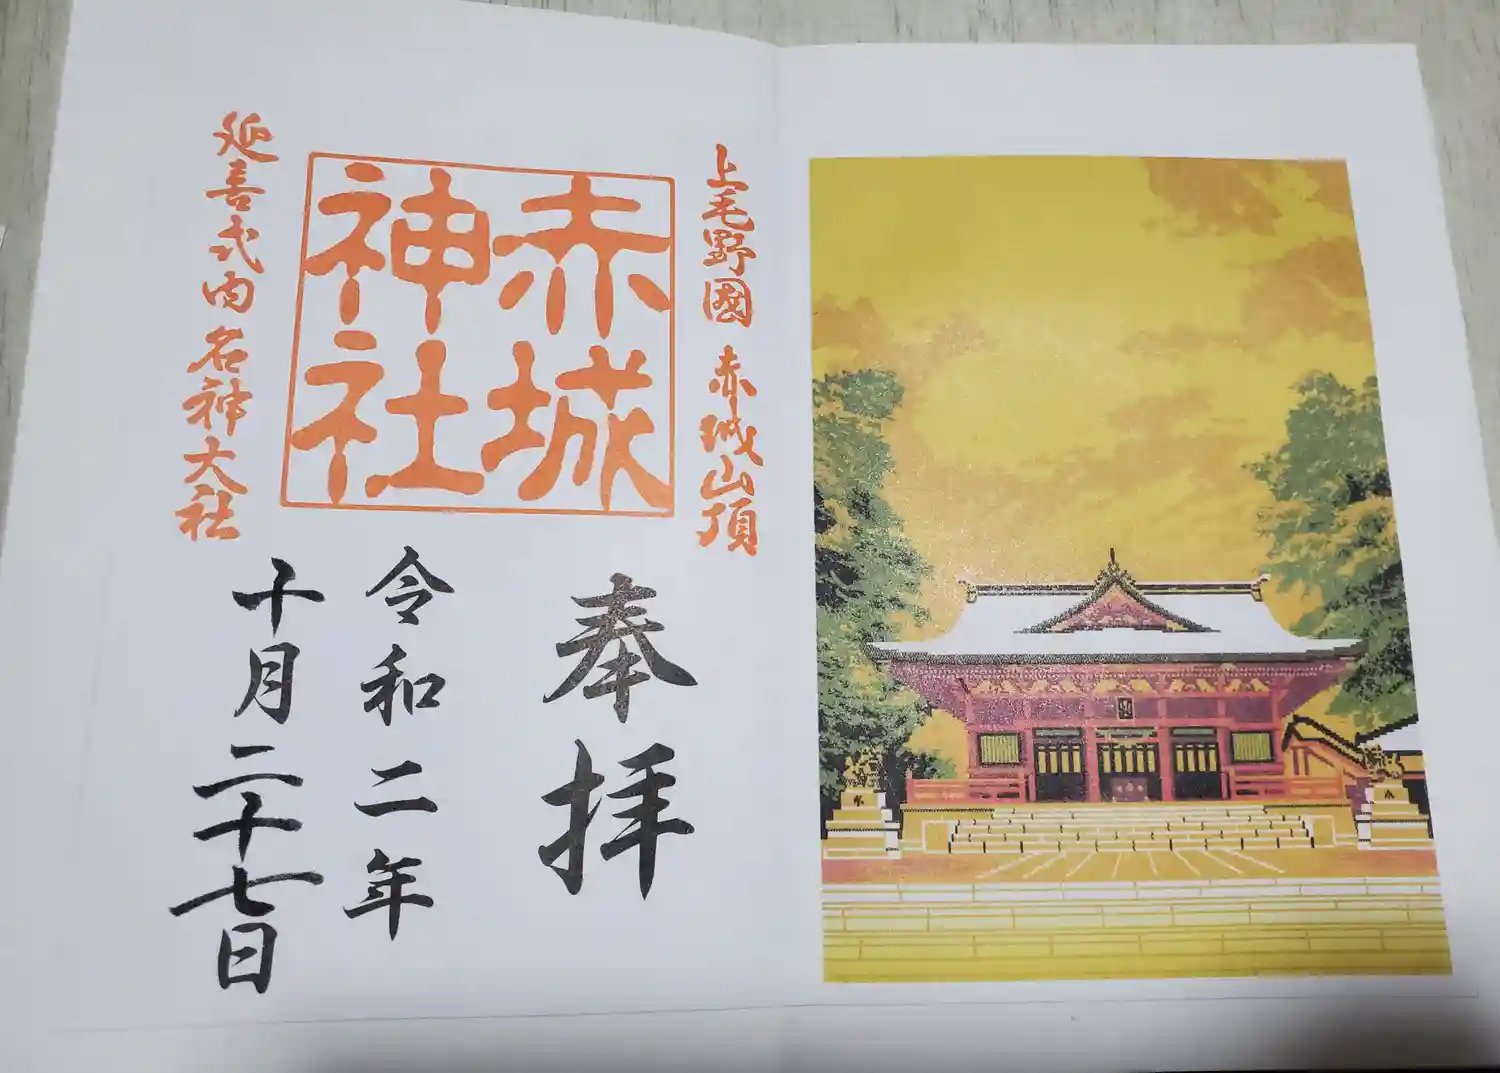 上毛野國 赤城山頂
赤城
神社
延喜式内名神大社
奉拝
令和二年
十月二十七日